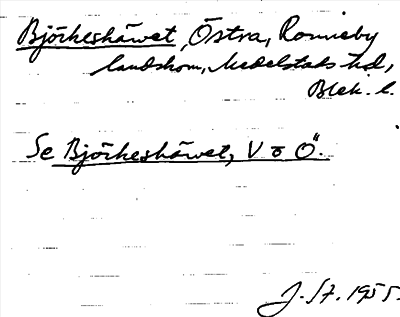 Björkeskärvet, Östra, Ronneby
landskom, Medelstads hd,
Blek. l.
Se Björkeskärvet, V o Ö.
J. Sf. 1955.